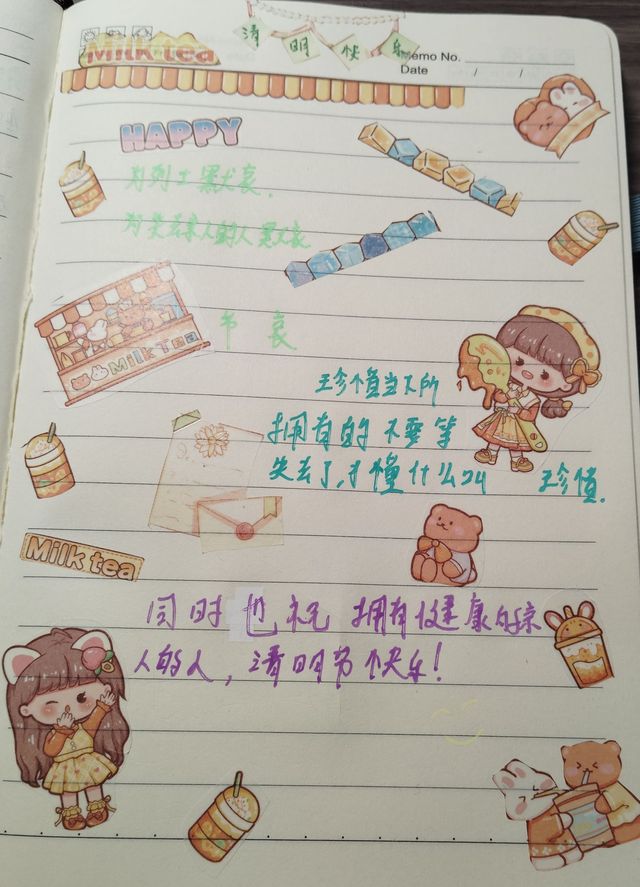 清明快乐
Milk tea
Memo No.
Date / /
HAPPY
为烈士默哀.
为失去亲人的人默哀
节 哀
Milk Tea
珍惜当下所
拥有的 不要等
失去了,才懂什么叫 珍惜.
Milk tea
同时也祝 拥有健康的亲
人的人,清明节快乐!